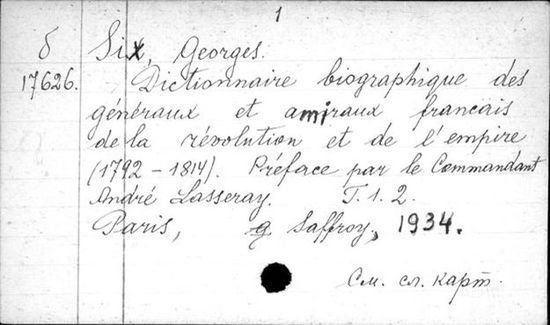 1
δ Six, Georges.
17626. Dictionnaire biographique des
généraux et amiraux francais
de la révolution et de l'empire
(1792 - 1814). Préface par le Commandant
André Lasseray. T. 1. 2.
Paris, g. Saffroy, 1934.
См. сл. карт.